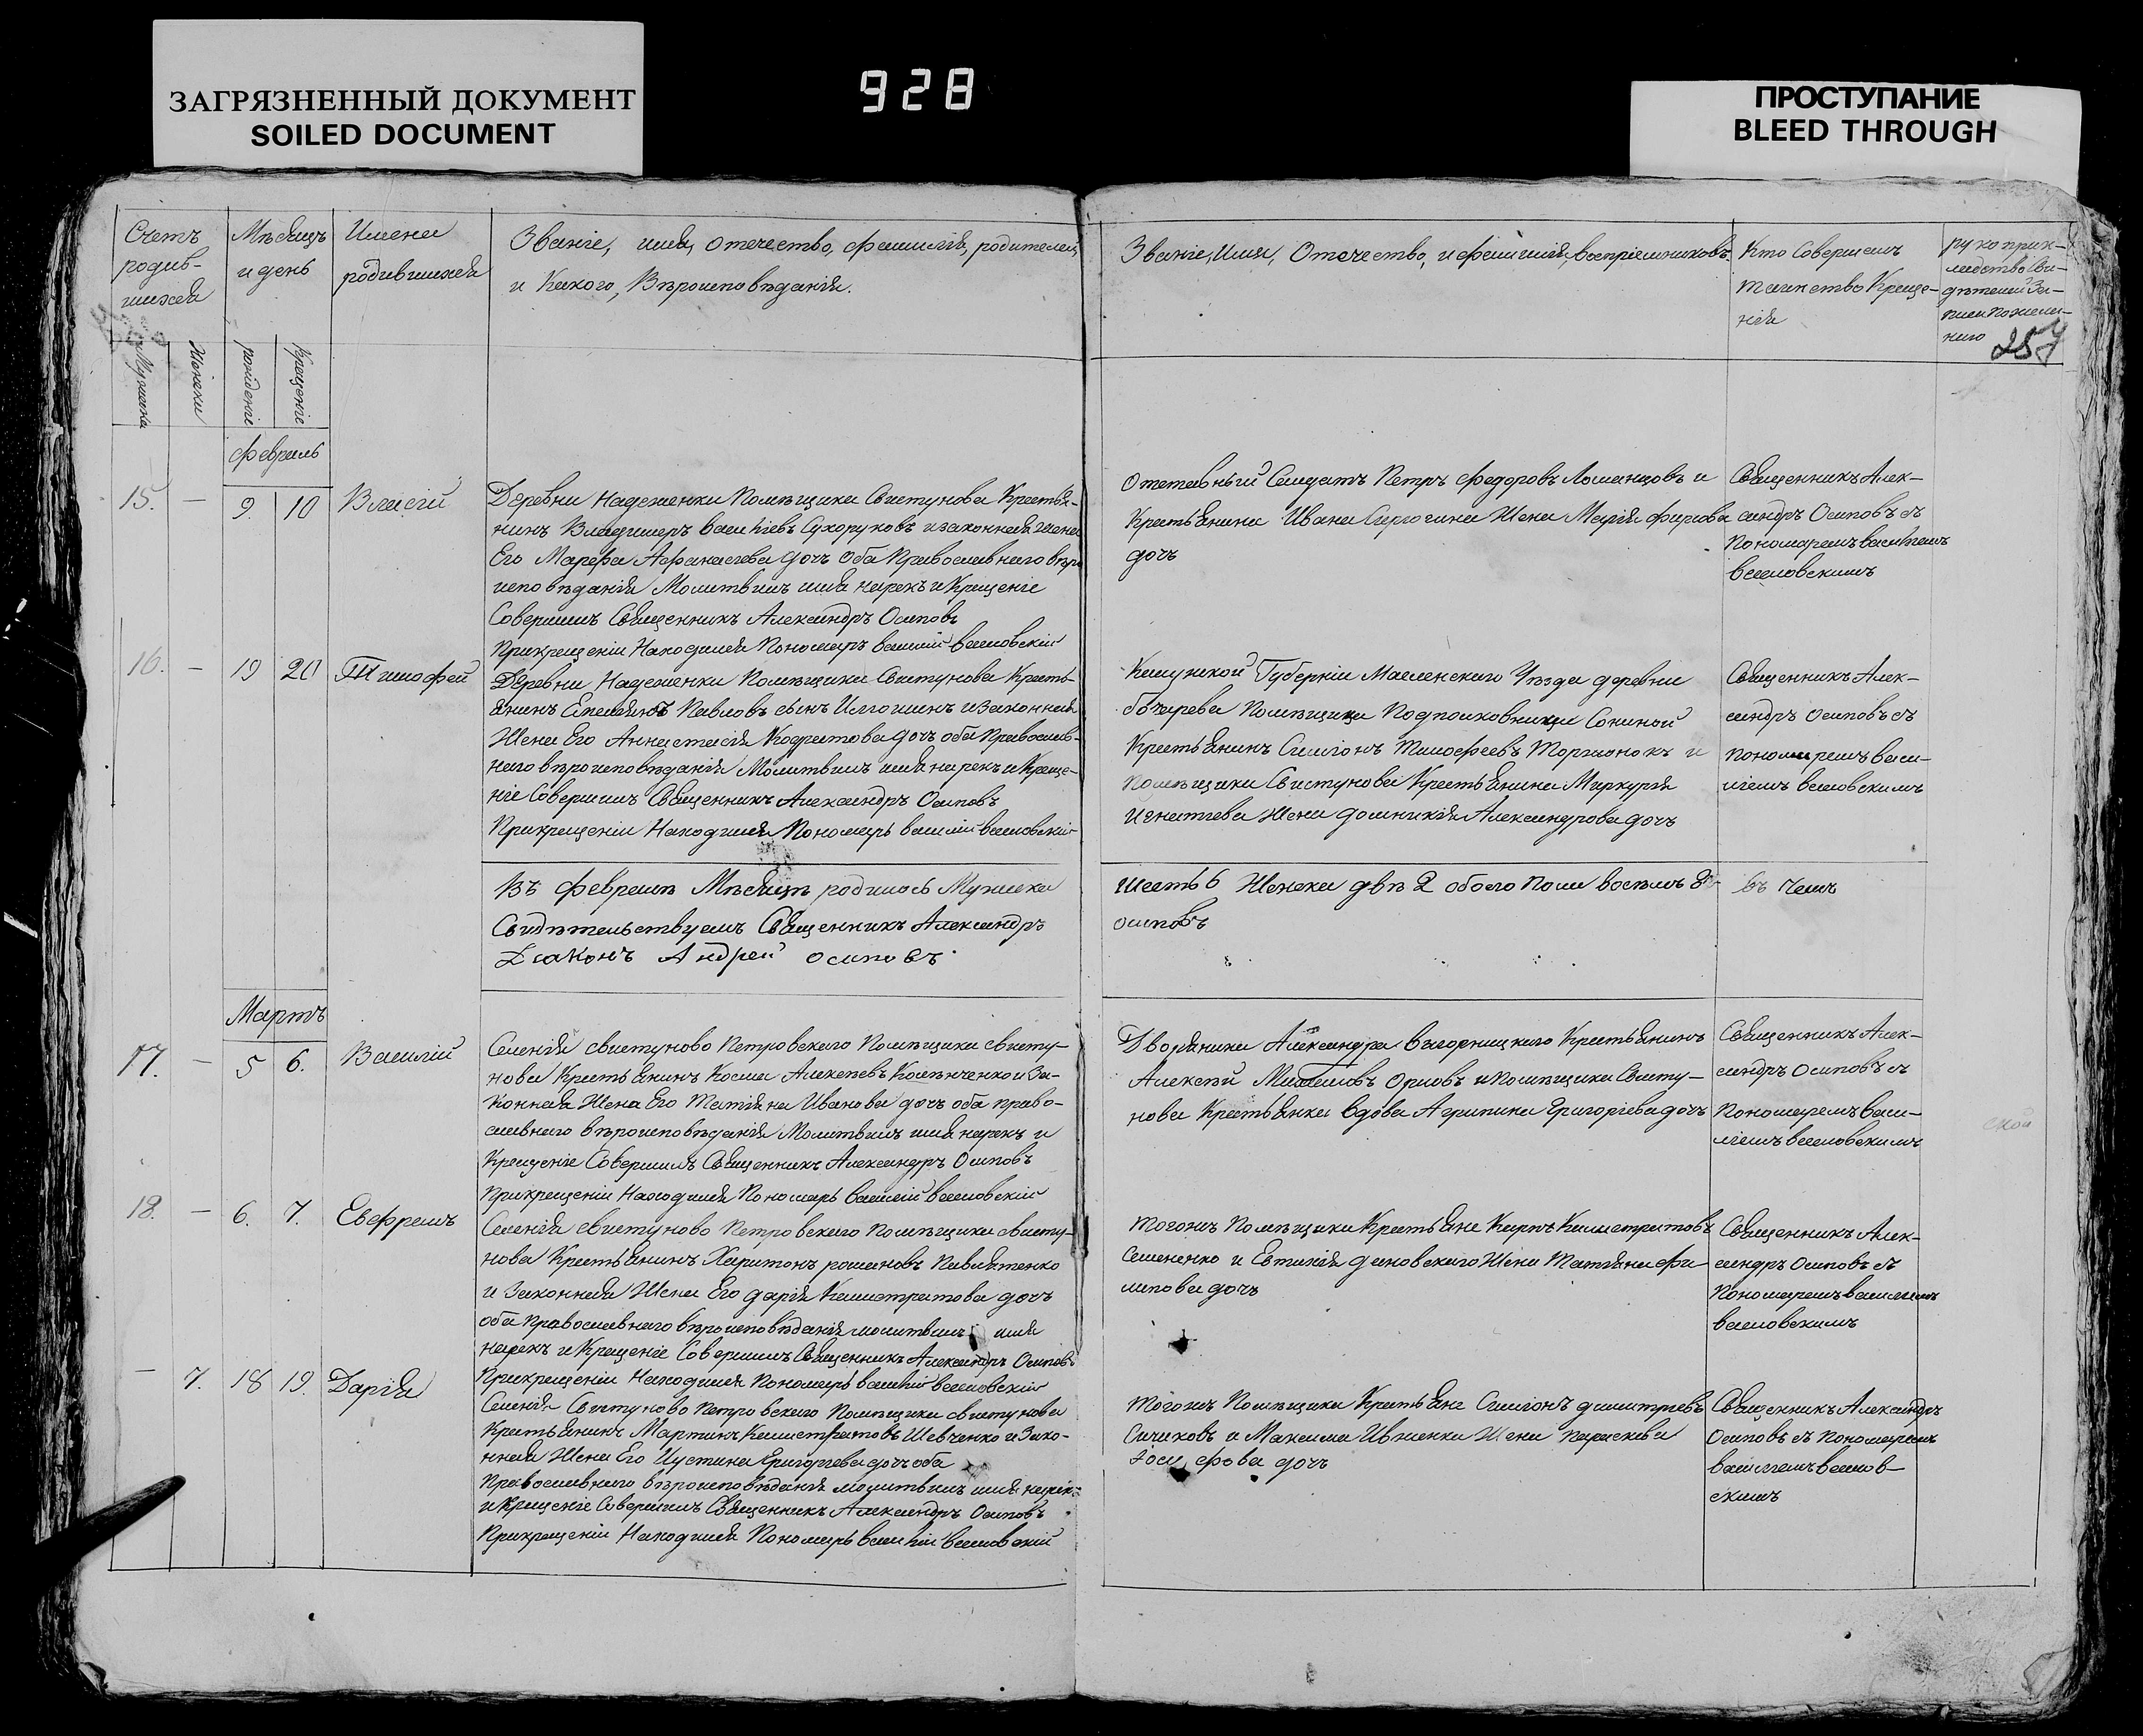 ЗАГРЯЗНЕННЫЙ ДОКУМЕНТ
SOILED DOCUMENT
928
ПРОСТУПАНИЕ
BLEED THROUGH
Счетъ родив-шихся
Мѣсяцъ и день
Имена родившихся
Званіе, имя, отечество, фамилія, родителей,
и Какого, Вѣроисповѣданія.
Званіе, Имя, Отечество, и фамилія, воспріемниковъ
Кто Совершалъ
таинство Креще-
нія
рукоприк-
ладство Сви-
дѣтелей За-
писи пожела-
нию
257
Мужеска
Женски
рожденіе
Крещеніе
Февраль
15. — 9. 10 Власій
Деревни Надеженки Помѣщика Свистунова Крестья-
нинъ Владимеръ Васильевъ Сухоруковъ и законная жена
Его Марфа Афанасіева дочь Оба Православнаго вѣро
исповѣданія Молитвилъ имя нарекъ и Крещеніе
Совершилъ Священникъ Александръ Осиповъ
При крещеніи Находился Пономарь василій веселовскій
Отставный Солдатъ Петръ Федоровъ Ломанцовъ и
Крестьянина Ивана Сирогина Жена Марія Фирсова
дочь
Священникъ Алек-
сандръ Осиповъ съ
Пономаремъ василіемъ
веселовскимъ
16. — 19 20 Тимофей
Деревни Надеженки Помѣщика Свистунова Кресть-
янинъ Емельянъ Павловъ сынъ Илюшинъ и Законная
Жена Его Анастасія Кодратова дочь оба Православ-
наго вѣроисповѣданія Молитвилъ имя нарекъ и Креще-
ніе Совершилъ Священникъ Александръ Осиповъ
При крещеніи Находился Пономарь василій веселовскій
Калужской Губерніи Масленскаго Уѣзда деревни
бочарева Помѣщицы Подполковницы Сониной
Крестьянинъ Симіонъ Тимофеевъ Торшонокъ и
Помѣщика Свистунова Крестьянина Меркурія
Игнатіева Жена домникія Александрова дочь
Священникъ Алек-
сандръ Осиповъ съ
пономаремъ васи-
ліемъ веселовскимъ
Въ Февралѣ Мѣсяцѣ родилось Мужеска
шесть 6 Женска двѣ 2 обоего пола восѣмъ 8 въ чемъ
Свидѣтельствуемъ Священникъ Александръ
осиповъ
Діаконъ Андрей осиповъ
Мартъ
17. — 5 6. Василій
Селенія свистуново Петровского Помѣщика свисту-
нова Крестьянинъ Косма Алексѣевъ Комѣнченко и За-
конная Жена Его Татіяна Иванова дочь оба право-
славнаго вѣроисповѣданія Молитвилъ имя нарекъ и
Крещеніе Совершилъ Священникъ Александръ Осиповъ
При крещеніи Находился Пономарь василій веселовскій
Дворяника Александра вагорницкаго Крестьянинъ
Алексѣй Михаиловъ Орловъ и Помѣщика Свисту-
нова Крестьянка вдова Агрипина Григоріева дочь
Священникъ Алек-
сандръ Осиповъ съ
пономаремъ васи-
ліемъ веселовскимъ
18. — 6. 7. Евфремъ
Селенія свистуново Петровского Помѣщика свисту-
нова Крестьянинъ Харитонъ романовъ Павлятенко
и Законная Жена Его дарія Калистратова дочь
оба православнаго вѣроисповѣданія молитвилъ имя
нарекъ и Крещеніе Совершилъ Священникъ Александръ Осиповъ
При крещеніи Находился Пономарь василій веселовскій
Тогожъ Помѣщика Крестьяне Карпъ Калистратовъ
Семененко и Евтихія дановского Жена Татіяна Фи
липова дочь
Священникъ Алек-
сандръ Осиповъ съ
Пономаремъ василіемъ
веселовскимъ
— 7. 18 19. Дарія
Селенія Свистуново Петровского Помѣщика свистунова
Крестьянинъ Мартинъ Калистратовъ Шевченко и Зако-
нная Жена Его Иустина Григоріева дочь оба
Православнаго вѣроисповѣданія молитвилъ имя нарекъ
и Крещеніе Совершилъ Священникъ Александръ Осиповъ
При крещеніи Находился Пономарь василій веселовскій
Тогожъ Помѣщика Крестьяне Симіонъ димитріевъ
Сичиковъ и Максима Ивженка Жена параскева
Іосифова дочь
Священникъ Александръ
Осиповъ съ пономаремъ
василіемъ веселов-
скимъ